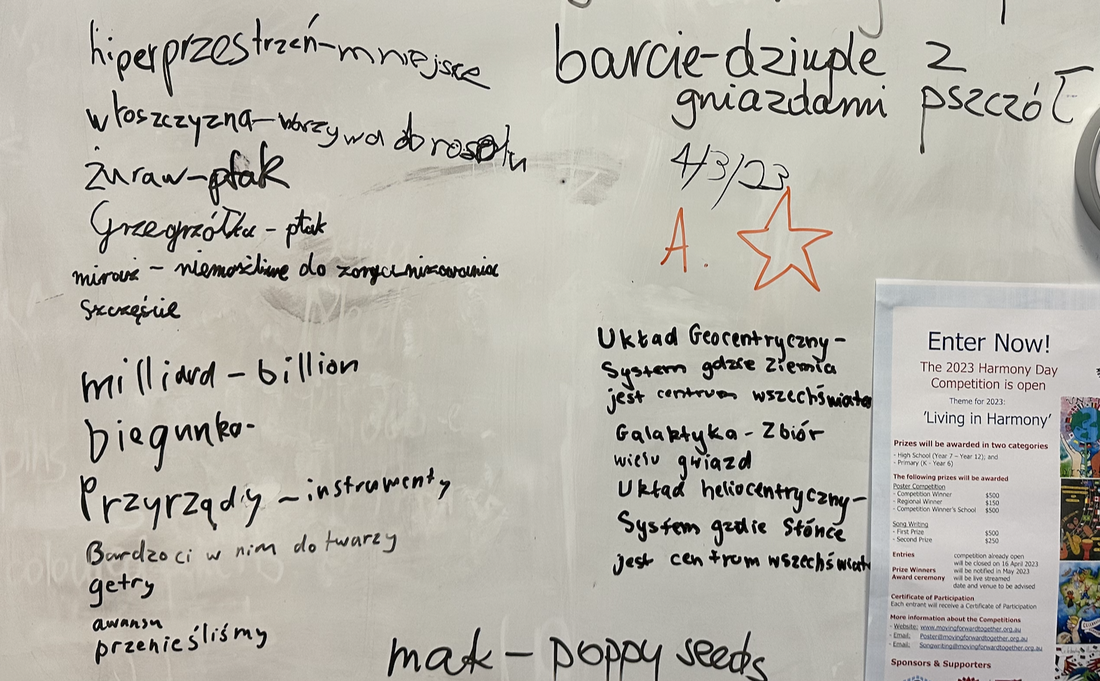 hiperprzestrzeń-mniejsce
włoszczyzna-warzywa do rosołu
żuraw-ptak
Grzegrzółka - ptak
- niemożliwe do
szczęście
milliard - billion
biegunka-
Przyrządiy - instrumenty
Bardzo ci w nim do twarzy
getry
awansu
przenieśliśmy
barcie-dziuple z
gniazdami pszczół
4/3/23
A.
Układ Geocentryczny-
System gdzie Ziemia
jest centrum wszechświata
Galaktyka - Zbiór
wielu gwiazd
Układ heliocentryczny-
System gzdie Słónce
jest centrum wszechświat
mak - poppy seeds
Enter Now!
The 2023 Harmony Day
Competition is open
Theme for 2023:
'Living in Harmony'
Prizes will be awarded in two categories
- High School (Year 7 - Year 12); and
- Primary (K - Year 6)
The following prizes will be awarded
Poster Competition
- Competition Winner $500
- Regional Winner $150
- Competition Winner's School $500
Song Writing
- First Prize $500
- Second Prize $250
Entries competition already open
will be closed on 16 April 2023
Prize Winners will be notified in May 2023
Award ceremony will be live streamed
date and venue to be advised
Certificate of Participation
Each entrant will receive a Certificate of Participation
More information about the Competitions
- Website: www.movingforwardtogether.org.au
- Email: Poster@movingforwardtogether.org.au
- Email: Songwriting@movingforwardtogether.org.au
Sponsors & Supporters